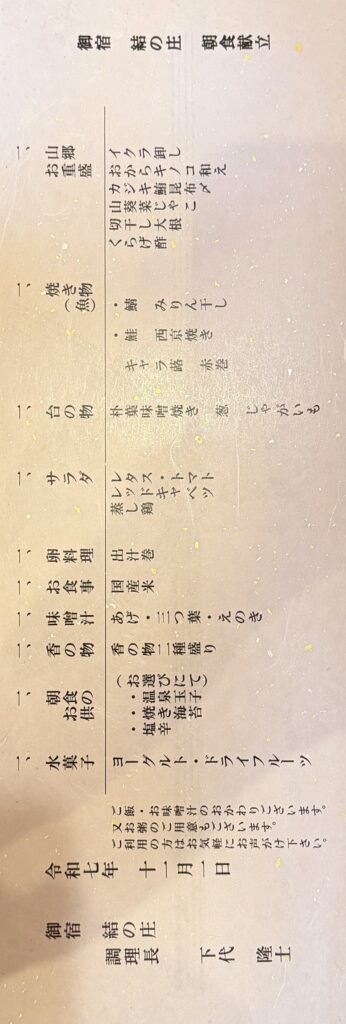 御宿 結の庄 朝食献立
一、山郷お重盛
イクラ卸し
おからキノコ和え
カジキ鮪昆布〆
山葵菜じゃこ
切干し大根
くらげ酢
一、焼き物(魚)
・鯖 みりん干し
・鮭 西京焼き
キャラ蕗 赤巻
一、台の物
朴葉味噌焼き 葱 じゃがいも
一、サラダ
レタス・トマト
レッドキャベツ
蒸し鶏
一、卵料理
出汁巻
一、お食事
国産米
一、味噌汁
あげ・三つ葉・えのき
一、香の物
香の物二種盛り
一、朝食のお供
(お選びにて)
・温泉玉子
・焼き海苔
・塩辛
一、水菓子
ヨーグルト・ドライフルーツ
ご飯・お味噌汁のおかわりございます。
又お粥のご用意もございます。
ご利用の方はお気軽にお声がけ下さい。
令和七年 十一月一日
御宿 結の庄
調理長 下代 隆士